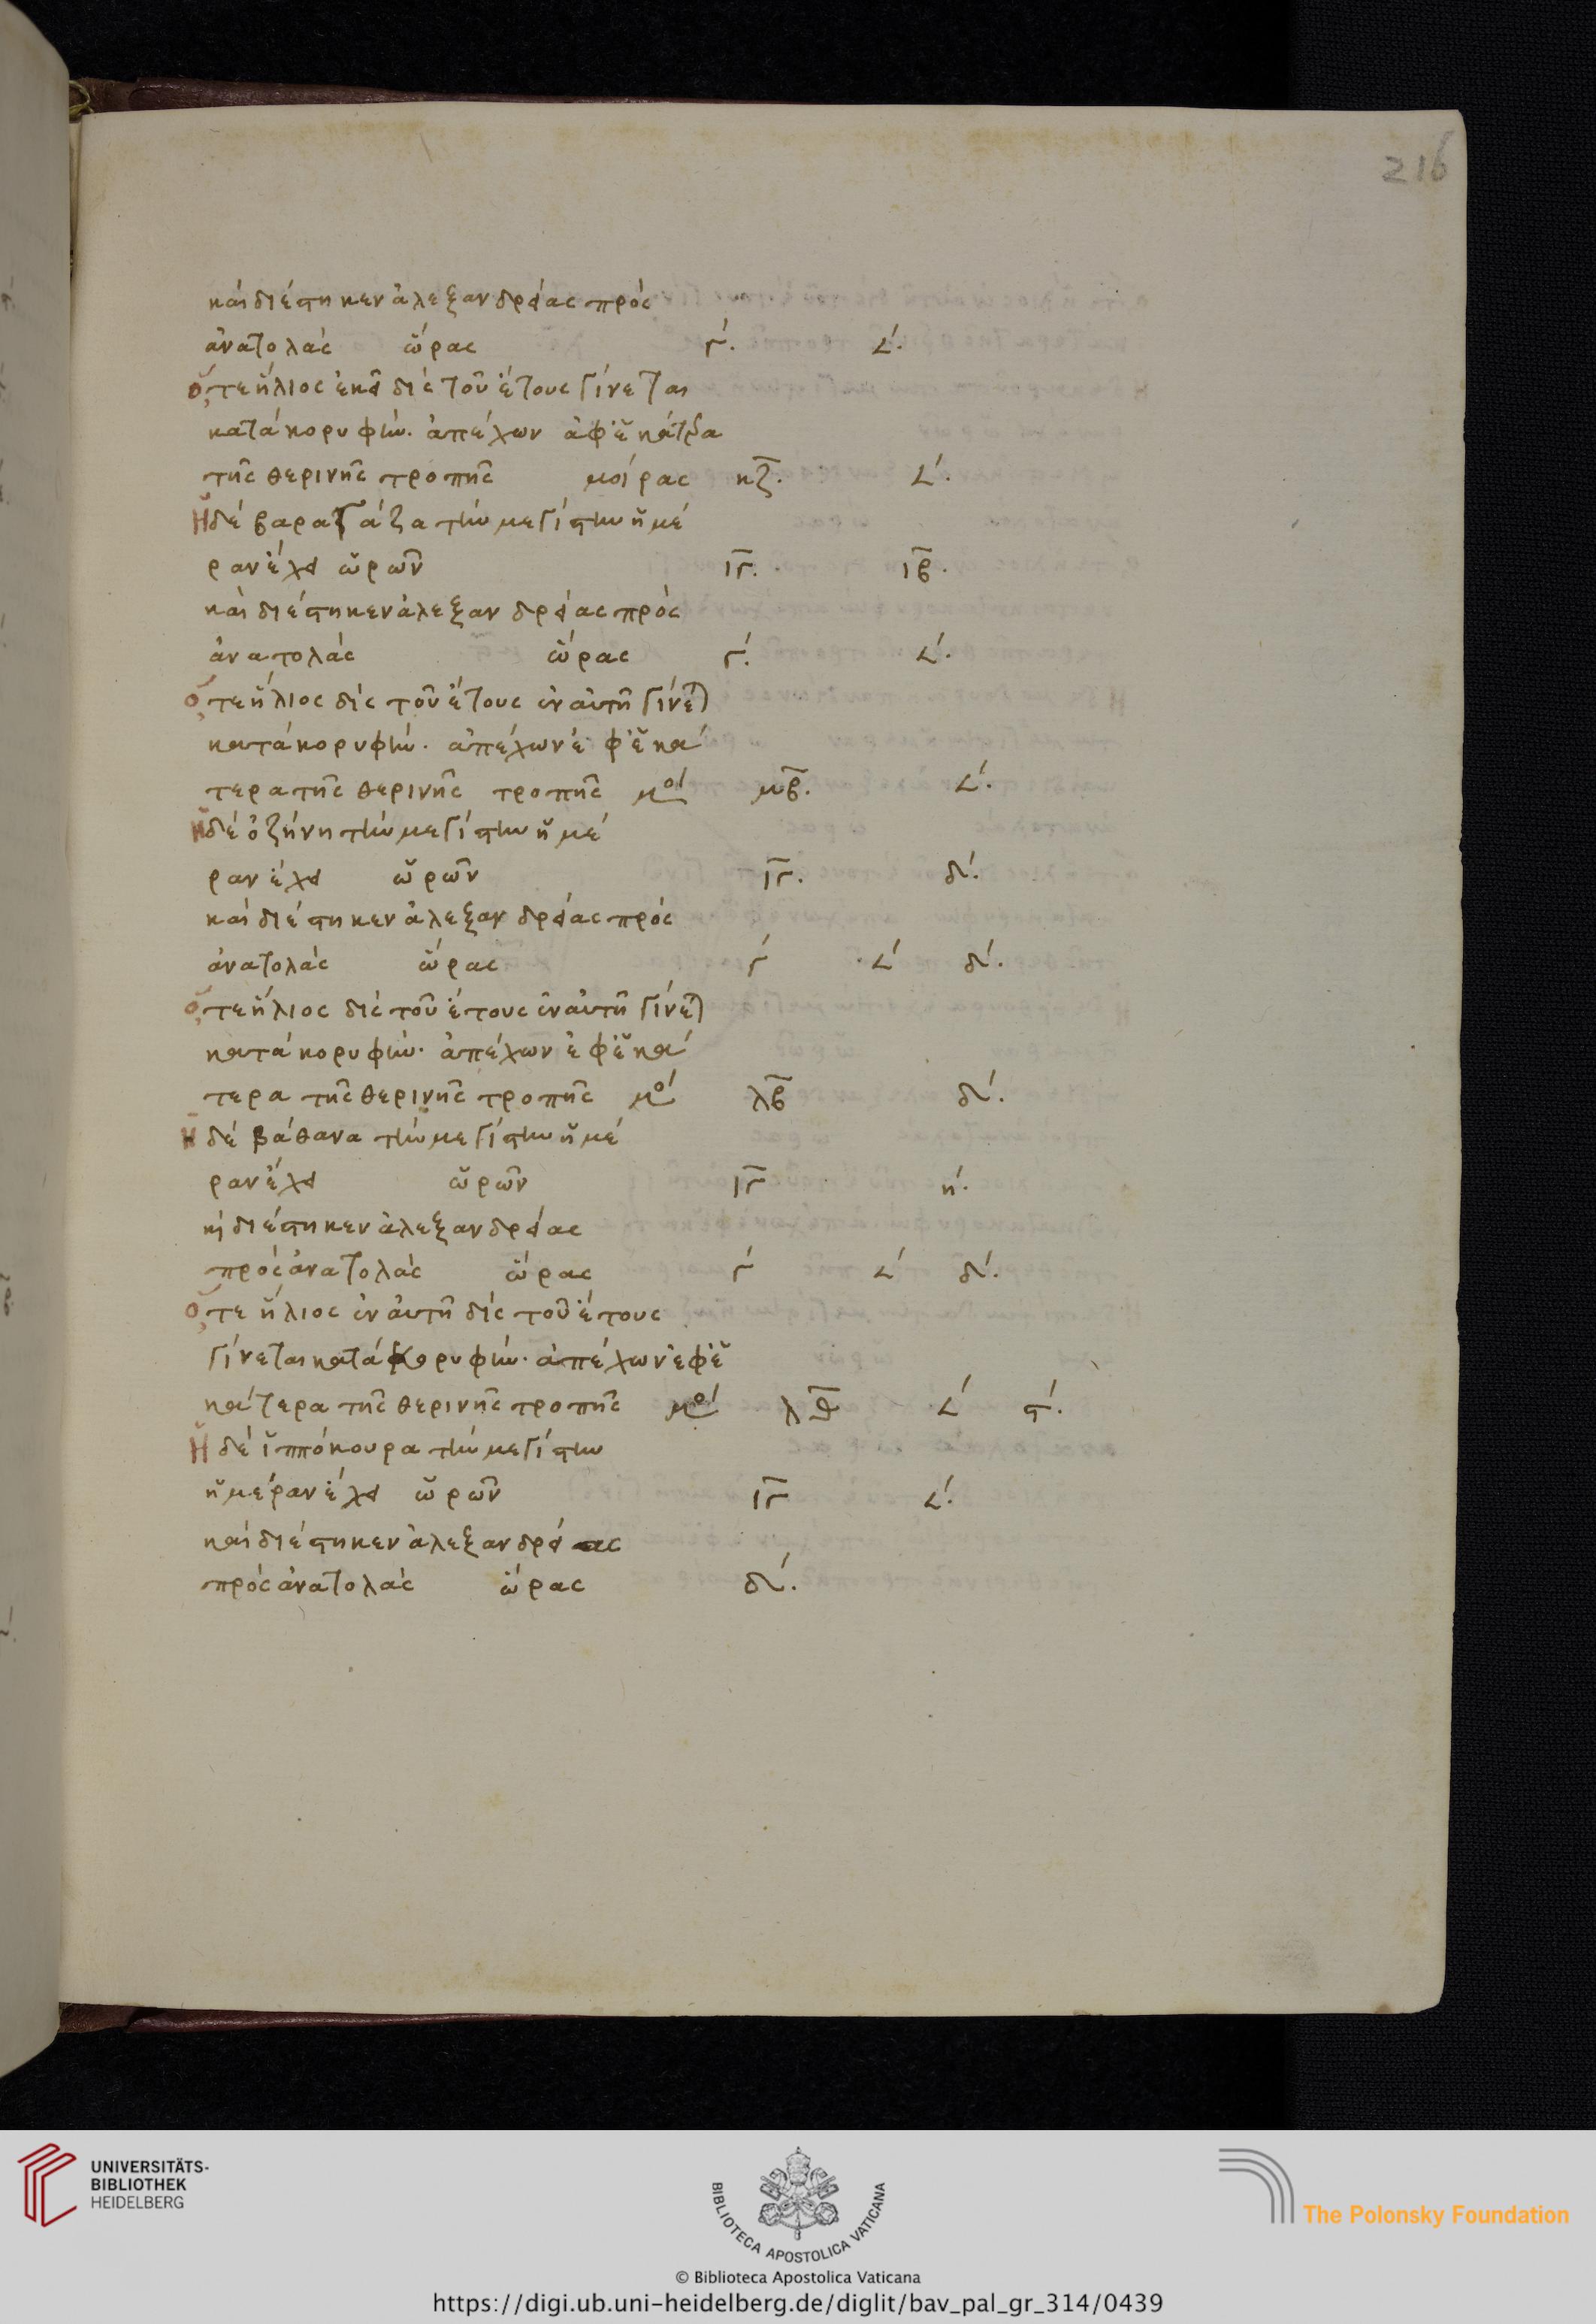 216
καὶ διέστηκεν ἀλεξανδρείας πρὸς
ἀνατολὰς ὥρας γ´. 𐅵´.
ὅτε ἥλιος ἐκεῖ δὶς τοῦ ἔτους γίνεται
κατὰ κορυφήν. ἀπέχων ἀφ' ἑκάτερα
τῆς θερινῆς τροπῆς μοίρας κζ. 𐅵´.
Ἡ δὲ βαρατάζα τὴν μεγίστην ἡμέ
ραν ἔχει ὡρῶν ιγ. ιβ.
καὶ διέστηκεν ἀλεξανδρείας πρὸς
ἀνατολὰς ὥρας γ´. 𐅵´.
ὅτε ἥλιος δὶς τοῦ ἔτους ἐν αὐτῆ γίνετ)
κατὰ κορυφήν. ἀπέχων ἐφ' ἑκα
τερα τῆς θερινῆς τροπῆς μοί μβ. 𐅵´.
Ἡ δὲ ὀζήνη τὴν μεγίστην ἡμέ
ραν ἔχει ὡρῶν ιγ. δ´.
καὶ διέστηκεν ἀλεξανδρείας πρὸς
ἀνατολὰς ὥρας γ´ 𐅵´ δ´.
ὅτε ἥλιος δὶς τοῦ ἔτους ἐν αὐτῆ γίνετ)
κατὰ κορυφήν. ἀπέχων ἐφ' ἑκά
τερα τῆς θερινῆς τροπῆς μοί λβ δ´.
Ἡ δὲ βάθανα τὴν μεγίστην ἡμέ
ραν ἔχει ὡρῶν ιγ η´.
κὶ διέστηκεν ἀλεξανδρείας
πρὸς ἀνατολὰς ὥρας γ´ 𐅵´ δ´.
ὅτε ἥλιος ἐν αὐτῆ δὶς τοῦ ἔτους
γίνεται κατὰ κορυφήν. ἀπέχων ἐφ' ἑ
κάτερα τῆς θερινῆς τροπῆς μοί λθ 𐅵´ ϛ´.
Ἡ δὲ ἱππόκουρα τὴν μεγίστην
ἡμέραν ἔχει ὡρῶν ιγ 𐅵´.
καὶ διέστηκεν ἀλεξανδρείας
πρὸς ἀνατολὰς ὥρας δ´.
UNIVERSITÄTS-
BIBLIOTHEK
HEIDELBERG
BIBLIOTECA APOSTOLICA VATICANA
The Polonsky Foundation
© Biblioteca Apostolica Vaticana
https://digi.ub.uni-heidelberg.de/diglit/bav_pal_gr_314/0439